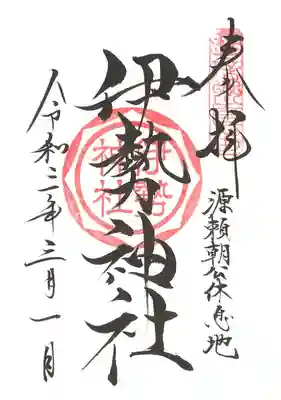 奉拝
源頼朝公休息地
伊勢神社
伊勢神社
令和二年三月一日